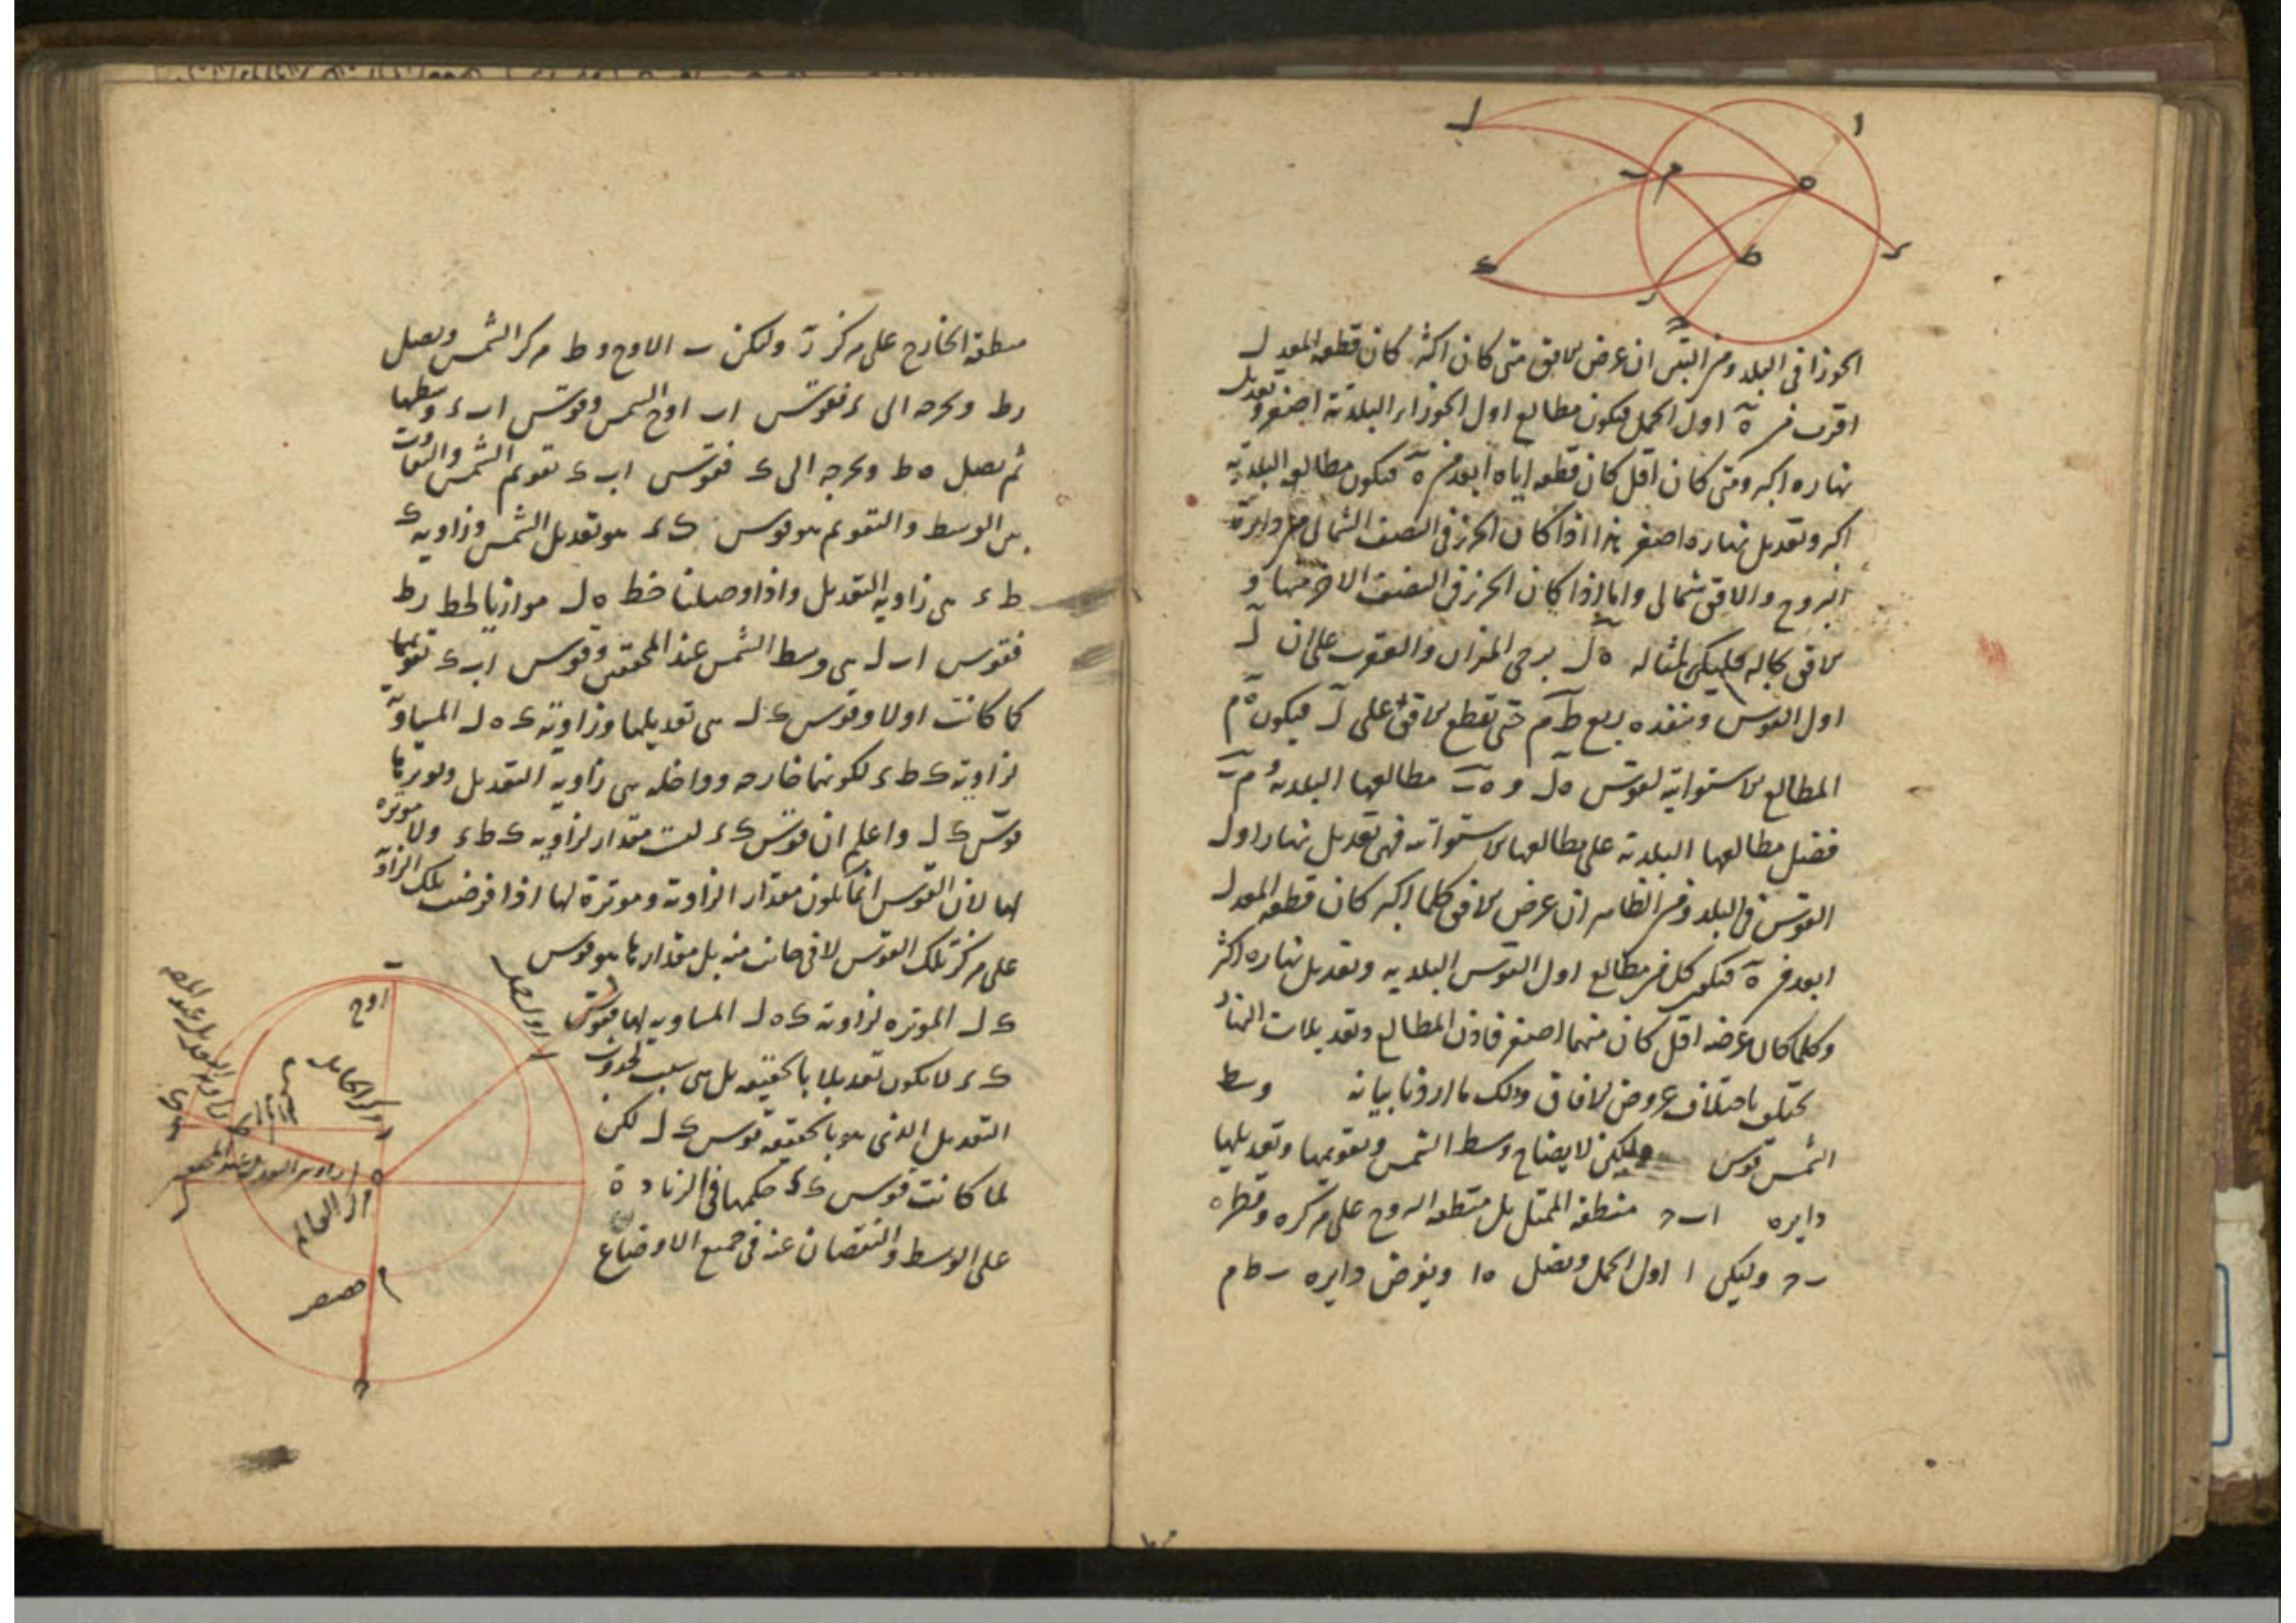 الجوزا في البلد ومن البين ان عرض الافق متى كان اكثر كان قطعه المعدل
اقرب من ه اول الحمل فيكون مطالع اول الجوزاء البلدية اصغر وتعديل
نهاره اكبر ومتى كان اقل كان قطعه اياه ابعد من ه فيكون مطالعه البلدية
اكبر وتعديل نهاره اصغر هذا اذا كان الجزء في النصف الشمالي من دايرة
البروج والافق شمالي واما اذا كان الجزء في النصف الاخر منها و
الافق بحاله فليكن لمثاله ه ل برجي الميزان والعقرب على ان ل
اول القوس وننفذه ربع ط م حتى تقطع الافق على ل فيكون ه م
المطالع الاستوائية لقوس ه ل و ه ب مطالعها البلدية و م ب
فضل مطالعها البلدية على مطالعها الاستوائية فهي تعديل نهار اول
القوس في البلد ومن الظاهر ان عرض الافق كلما اكبر كان قطعه المعدل
ابعد من ه فيكون كل من مطالع اول القوس البلدية وتعديل نهاره اكثر
وكلما كان عرضه اقل كان منهما اصغر فاذن المطالع وتعديلات النهار
تختلف باختلاف عروض الافاق وذلك ما اردنا بيانه وسط
الشمس قوس وليكن لايضاح وسط الشمس وتقويمها وتعديلها
دايره ا ب ح منطقة الممثل بل منطقة البروج على مركزه وقطره
ب ح وليكن ا اول الحمل ونصل ه ا ونفرض دايره ب ط م
ا
ل
م
ب
ه
ط
ء
ر
منطقة الخارج على مركز ز وليكن ب الاوج و ط مركز الشمس ونصل
ز ط ونخرجه الى ء فقوس ا ب اوج الشمس وقوس ا ب ء وسطها
ثم نصل ه ط ونخرجه الى ك فقوس ا ب ك تقويم الشمس والتفاوت
بين الوسط والتقويم هو قوس ك ء هو تعديل الشمس وزاوية ك
ط ء هي زاوية التعديل واذا وصلنا خط ه ل موازيا لخط ز ط
فقوس ا ب ل هي وسط الشمس عند المحققين وقوس ا ب ك تقويمها
كما كانت اولا وقوس ك ل هي تعديلها وزاوية ك ه ل المساوية
لزاوية ك ط ء لكونهما خارجه وداخله هي زاوية التعديل وموترها
قوس ك ل واعلم ان قوس ك ء ليست مقدار لزاوية ك ط ء ولا موترة
لها لان القوس انما يكون مقدار الزاوية وموترة لها اذا فرضت تلك الزاوية
على مركز تلك القوس لا في جانب منه بل مقدارها هو قوس
ك ل الموترة لزاوية ك ه ل المساوية لها فقوس
ك ء لا يكون تعديلا بالحقيقه بل هي سبب لحدوث
التعديل الذي هو بالحقيقه قوس ك ل لكن
لما كانت قوس ك ء حكمها في الزيادة
على الوسط والنقصان عنه في جميع الاوضاع
ب
اوج
ا اول حمل
مركز الحامل
مركز العالم
م حضيض
ح